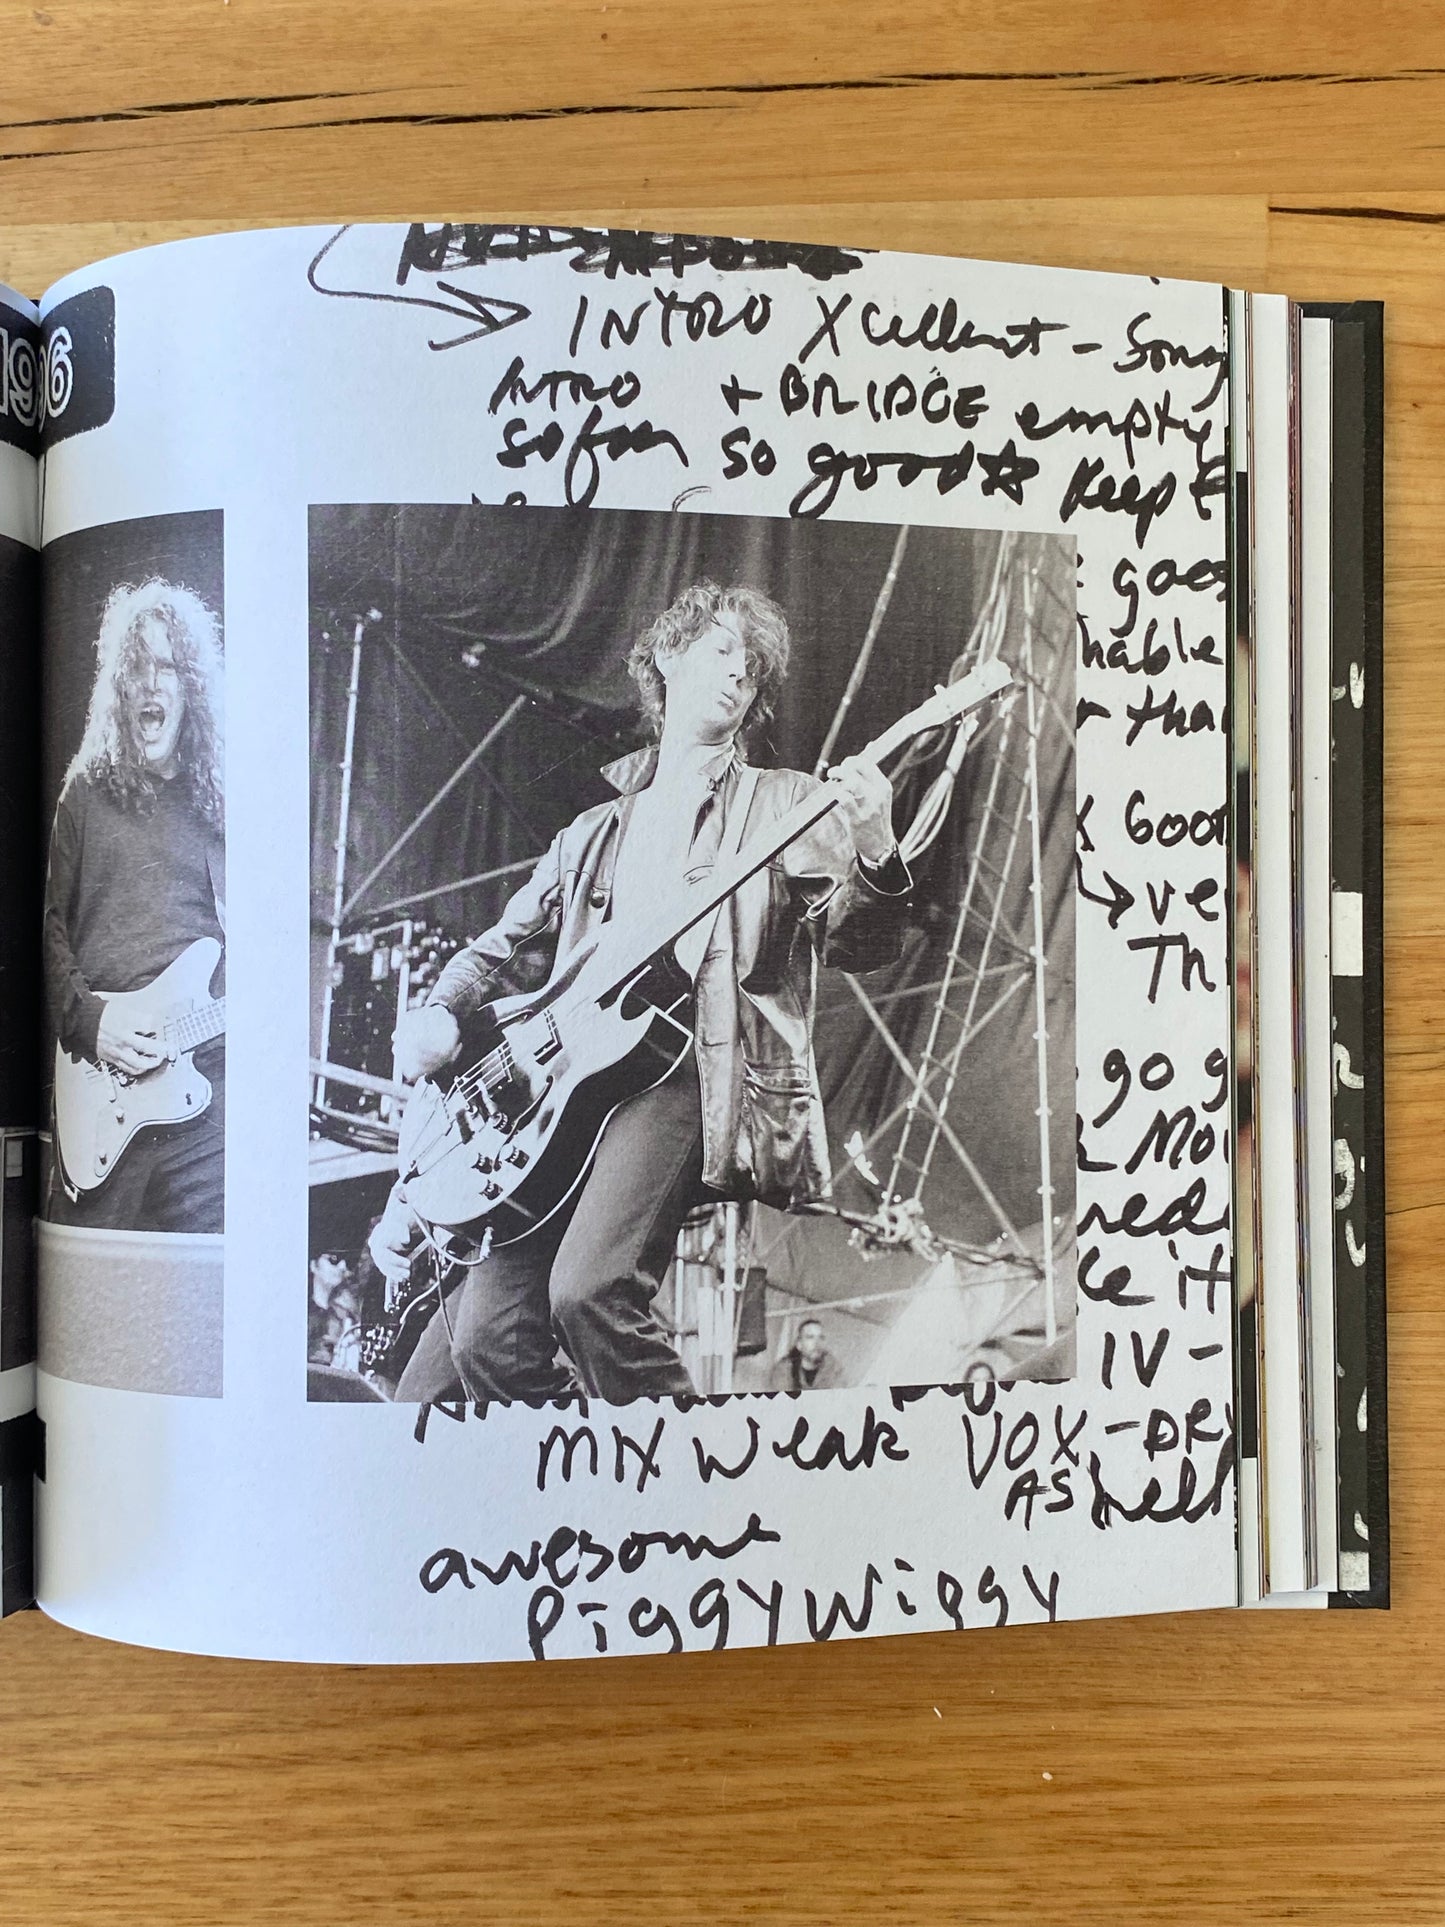 1996
INTRO Xcellent - Song
INTRO + BRIDGE empty
so far so good Keep
goes
hable
r than
Good
ve
Th
go g
Mo
red
ke it
IV -
MIX Weak VOX - DR
AS hell
awesome
PiggyWiggy